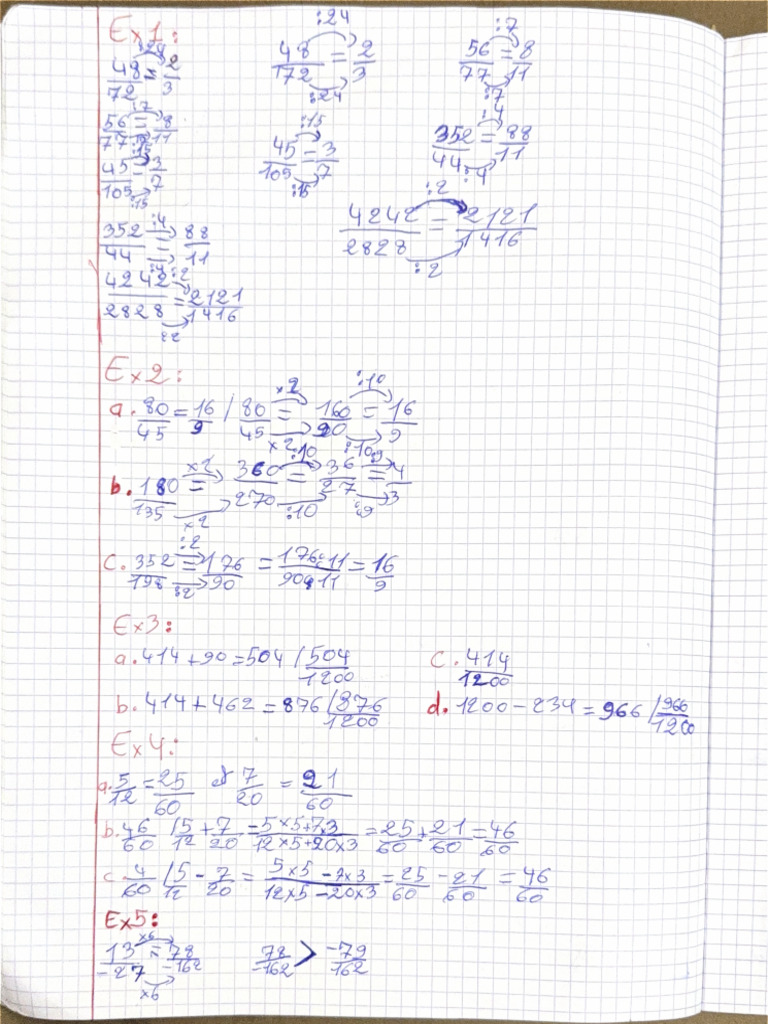 Ex1:
:24 :24 :7
48/72 = 2/3 48/172 = 2/3 56/77 = 8/11
:24 :7
:7 :15 :4
56/77 = 8/11 45/105 = 3/7 352/44 = 88/11
:15 :15 :4
45/105 = 3/7
:15
:4 :2
352/44 = 88/11 4242/2828 = 2121/1416
:4 :2 :2
4242/2828 = 2121/1416
:2
Ex2:
×2 :10
a. 80/45 = 16/9 / 80/45 = 160/90 = 16/9
×2 :10
×2 :10 :9
b. 180/135 = 360/270 = 36/27 = 4/3
×2 :10 :9
:2
c. 352/198 = 176/90 = 176:11/90:11 = 16/9
:2
Ex3:
a. 414 + 90 = 504 / 504/1200 C. 414/1200
b. 414 + 462 = 876 / 876/1200 d. 1200 - 234 = 966 / 966/1200
Ex4:
a. 5/12 = 25/60 & 7/20 = 21/60
b. 46/60 / 5/12 + 7/20 = 5×5+7×3/12×5+20×3 = 25/60 + 21/60 = 46/60
c. 4/60 / 5/12 - 7/20 = 5×5-7×3/12×5-20×3 = 25/60 - 21/60 = 46/60
Ex5:
×6
13/-27 = 78/-162 78/-162 > -79/162
×6